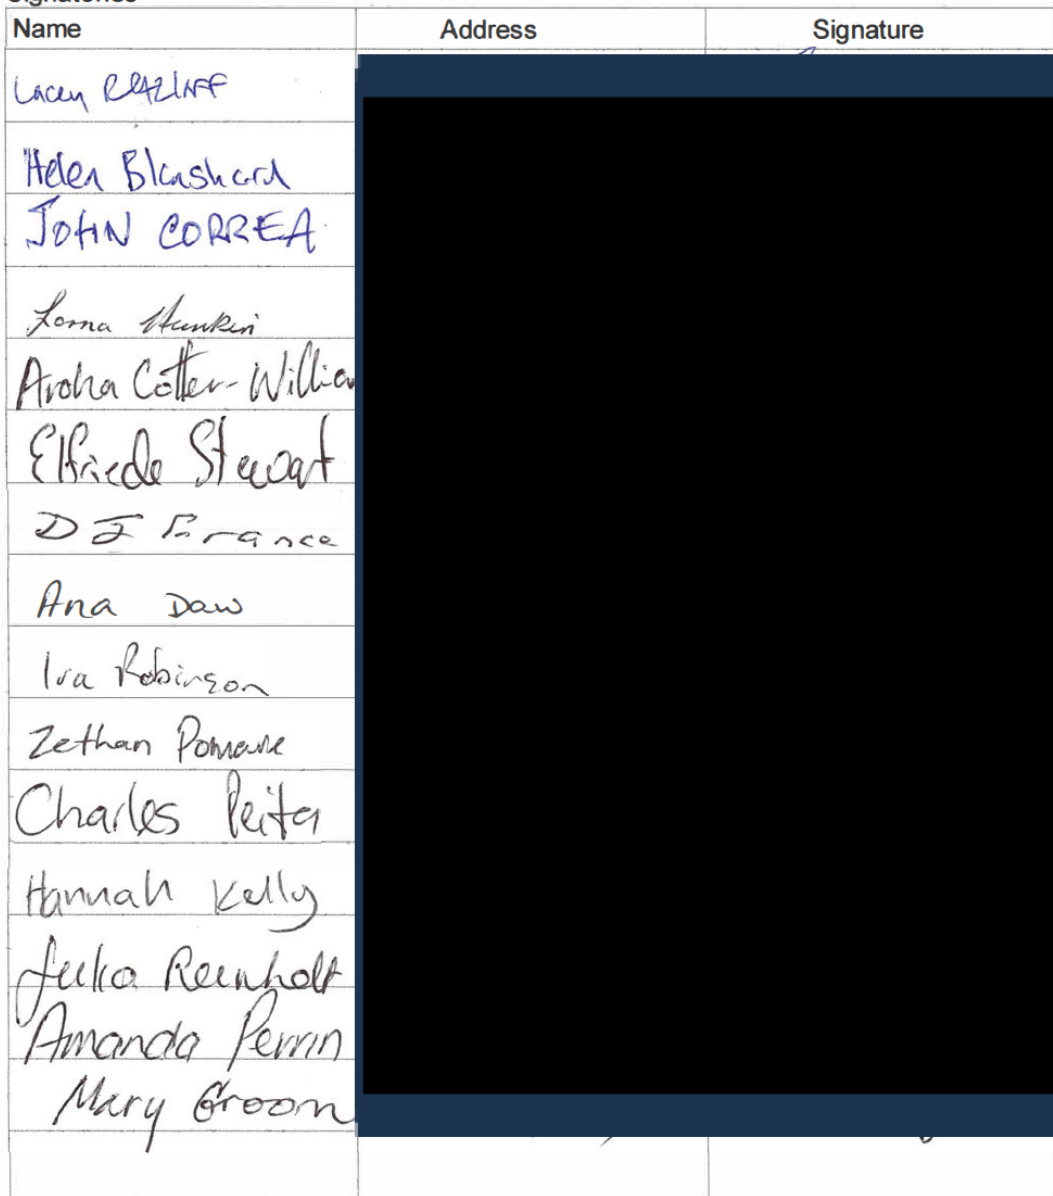 Signatories
Name Address Signature
Lacey
Helen Blanshard
JOHN CORREA
Lorna Hunkin
Aroha Cotter-William
Elfriede Stewart
D J France
Ana Daw
Iva Robinson
Zethan Pomare
Charles Peita
Hannah Kelly
Julia Reinholt
Amanda Perrin
Mary Groom